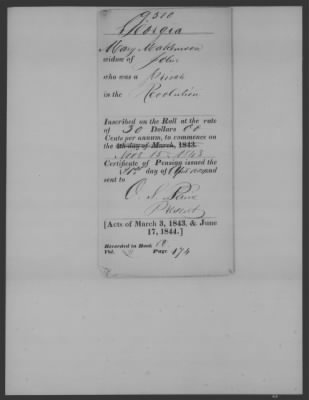 9300
Georgia
Mary
widow of John
who was a Private
in the Revolution
Inscribed on the Roll at the rate
of 30 Dollars 00
Cents per annum, to commence on
the 4th day of March, 1843.
Nov. 15. 1843
Certificate of Pension issued the
day of and
sent to
Present
[Acts of March 3, 1843, & June
17, 1844.]
Recorded in Book
Vol. Page 174